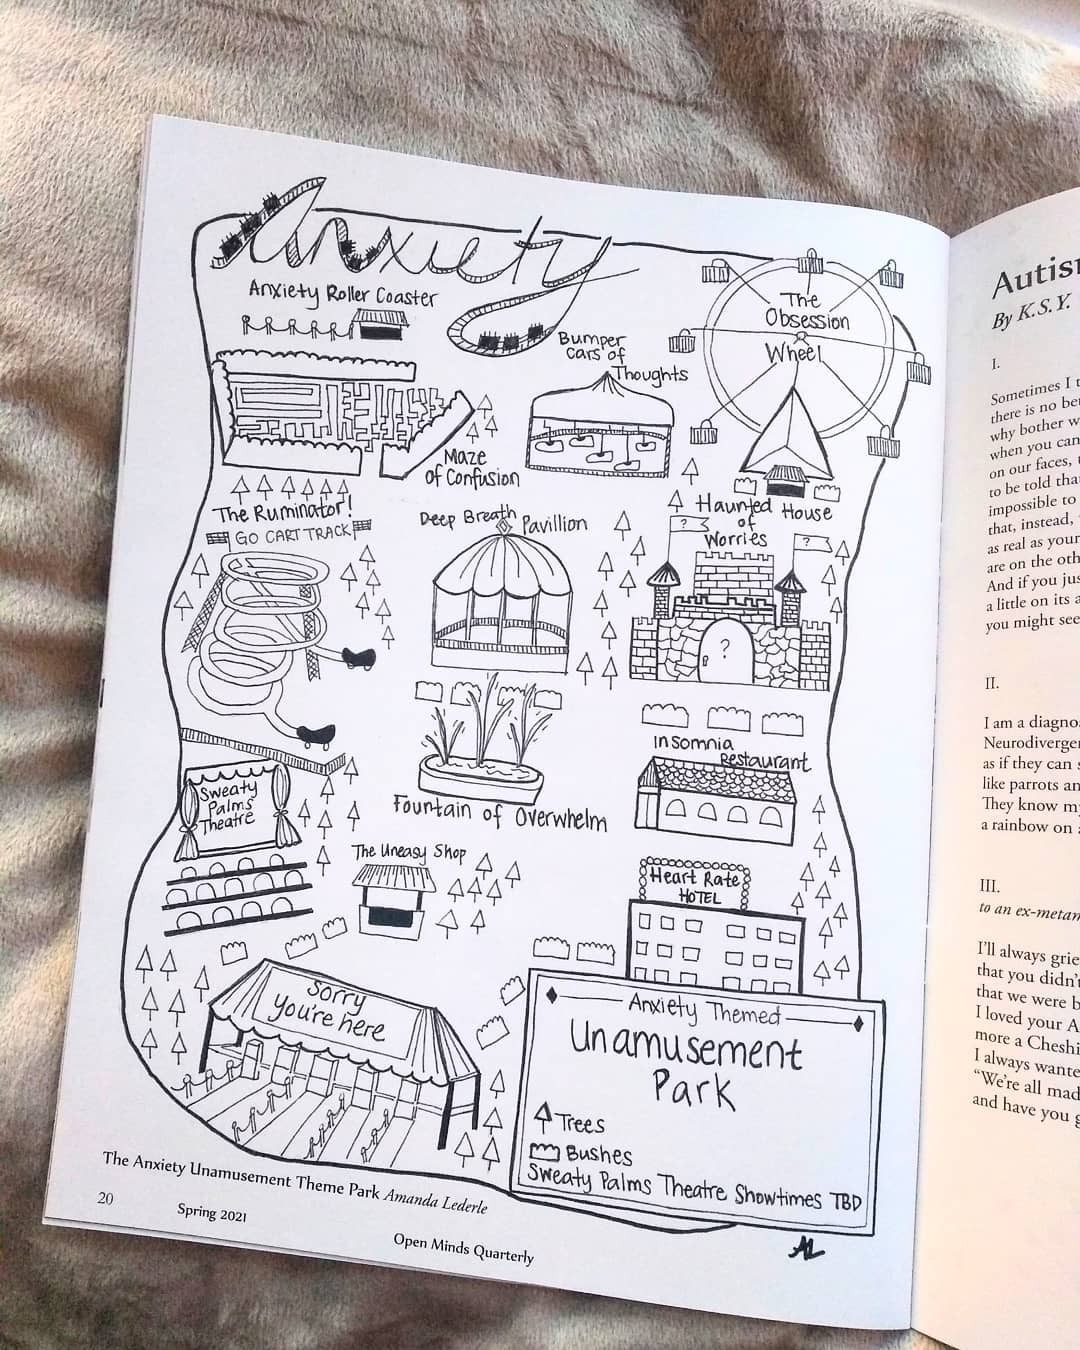 Anxiety
Anxiety Roller Coaster
The
Obsession
Wheel
Bumper
Cars of
Thoughts
Maze
of Confusion
The Ruminator!
GO CART TRACK
Deep Breath Pavillion
Haunted House
of
Worries
?
?
?
Insomnia
Restaurant
Sweaty
Palms
Theatre
Fountain of Overwhelm
The Uneasy Shop
Heart Rate
HOTEL
Sorry
you're here
Anxiety Themed
Unamusement
Park
Trees
Bushes
Sweaty Palms Theatre Showtimes TBD
AL
The Anxiety Unamusement Theme Park Amanda Lederle
20
Spring 2021
Open Minds Quarterly
By K.S.Y.
I.
Sometimes I
there is no
why bother
when you can
on our faces,
to be told
impossible to
that, instead,
as real as your
are on the
And if you
a little on its
you might see
II.
I am a
as if they can
like parrots
They know
a rainbow on
III.
to an
I'll always
that you didn't
that we were
I loved your
more a
I always
"We're all mad
and have you